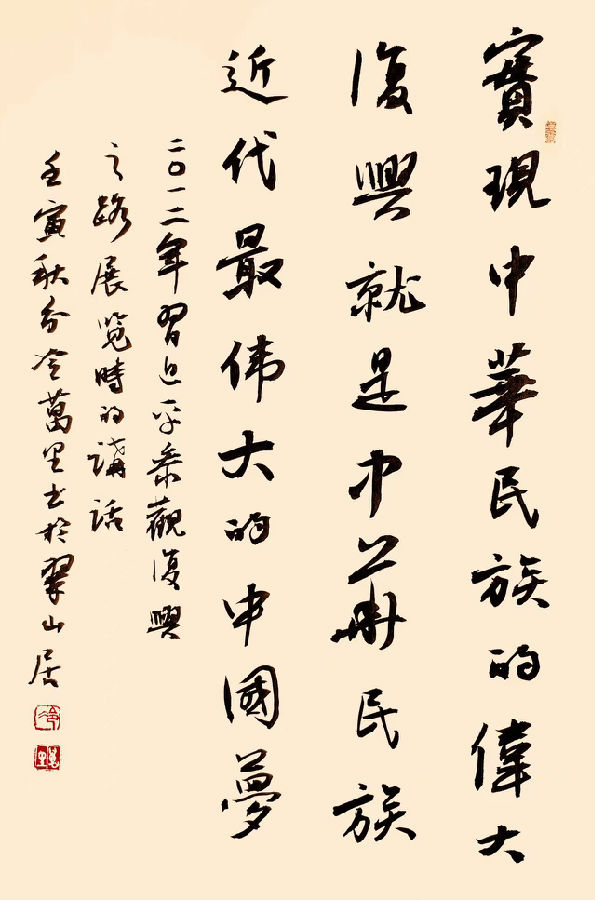 實現中華民族的偉大
復興就是中華民族
近代最伟大的中國夢
二〇一二年習近平叅觀復興
之路展览時的講話
壬寅秋分冷萬里書於翠山居